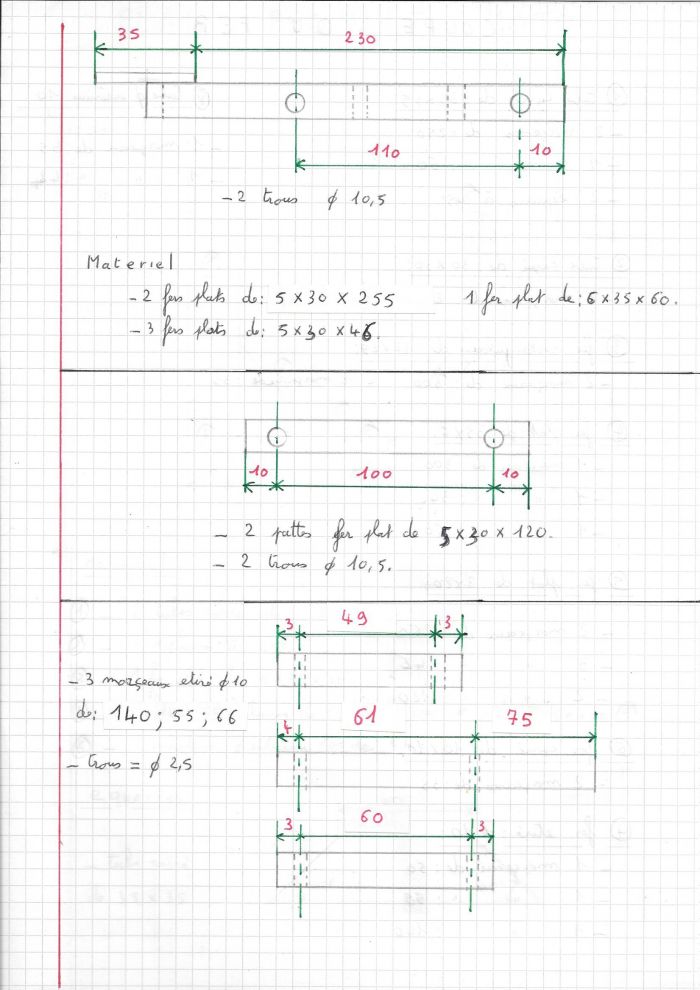 35 230
110 10
- 2 trous ϕ 10,5
Materiel
- 2 fers plats de: 5 x 30 x 255 1 fer plat de: 6 x 35 x 60.
- 3 fers plats de: 5 x 30 x 46.
10 100 10
- 2 pattes fer plat de 5 x 30 x 120.
- 2 trous ϕ 10,5.
3 49 3
- 3 morçeaux etiré ϕ 10
de: 140 ; 55 ; 66
4 61 75
- trous = ϕ 2,5
3 60 3